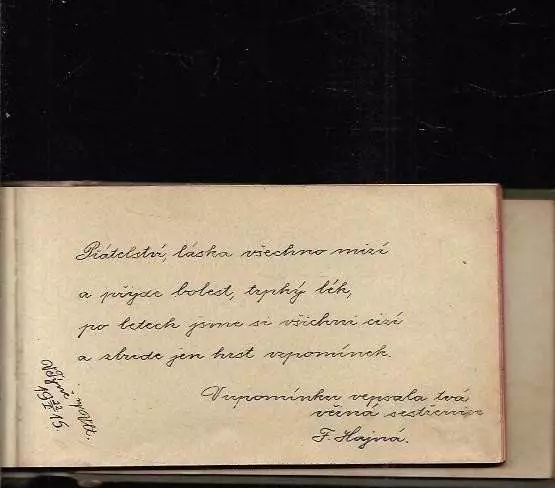 Přátelství, láska všechno mizí
a přijde bolest, trpký lék,
po letech jsme si všichni cizí
a zbude jen hrst vzpomínek.
Vzpomínku vepsala tvá
věrná sestřenice
F. Hajná.